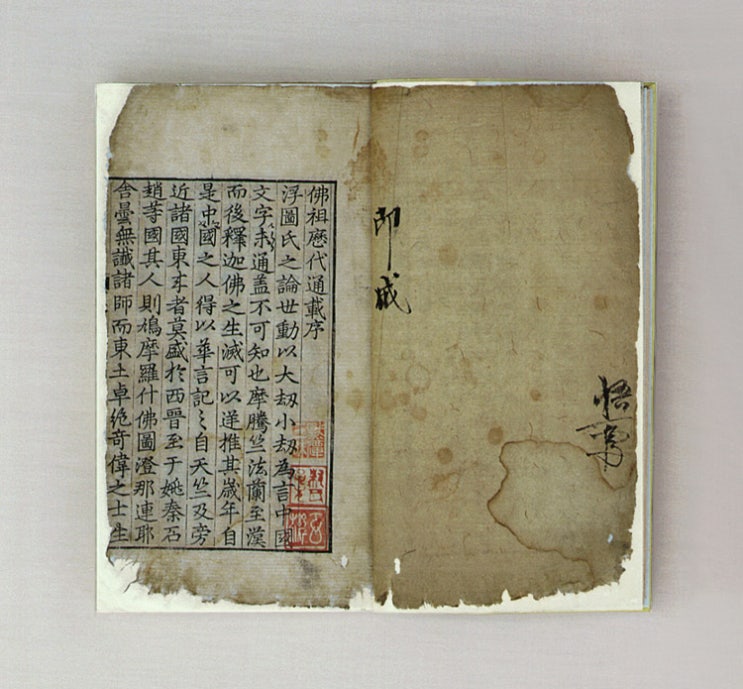 悟
即成
佛祖厯代通載序
浮圖氏之論世動以大刼小刼為言中國
文字未通盖不可知也摩騰竺法蘭至漢
而後釋迦佛之生滅可以逆推其歲年自
是中國之人得以華言記之自天竺及旁
近諸國東來者莫盛於西晋至于姚秦石
趙等國其人則鳩摩羅什佛圖澄那連耶
舍曇無讖諸師而東土卓絶奇偉之士生